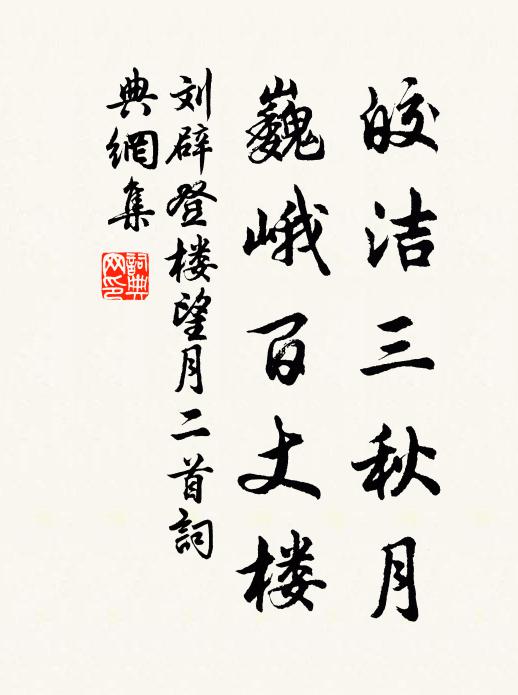 皎洁三秋月
巍峨百丈楼
刘辟登楼望月二首詞
典網集
詞典网印